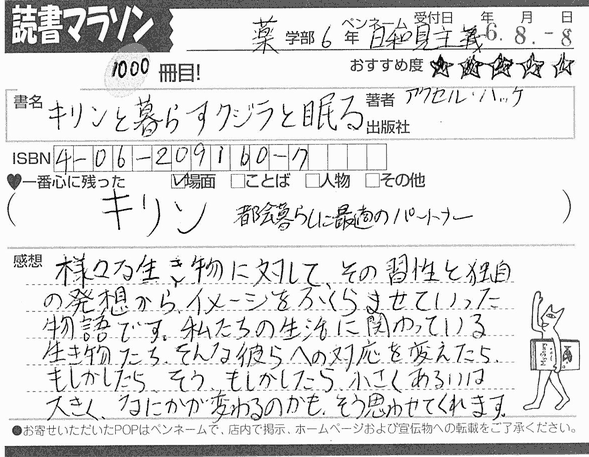 読書マラソン
薬 学部 6 年 ペンネーム 日和見主義 受付日 6年 8月 -8日
1000 冊目!
おすすめ度 ☆☆☆☆☆
書名 キリンと暮らすクジラと眠る 著者 アクセル・ハッケ
出版社
ISBN 4-06-209160-7
♥一番心に残った ☑場面 □ことば □人物 □その他
( キリン 都会暮らしに最適のパートナー )
感想 様々な生き物に対して、その習性と独自
の発想から、イメージをふくらませていった
物語です。私たちの生活に関わっている
生き物たち、そんな彼らへの対応を変えたら、
もしかしたら、そう、もしかしたら、小さくあるいは
大きく、なにかが変わるのかも、そう思わせてくれます。
●お寄せいただいたPOPはペンネームで、店内で掲示、ホームページおよび宣伝物への転載をご了承ください。